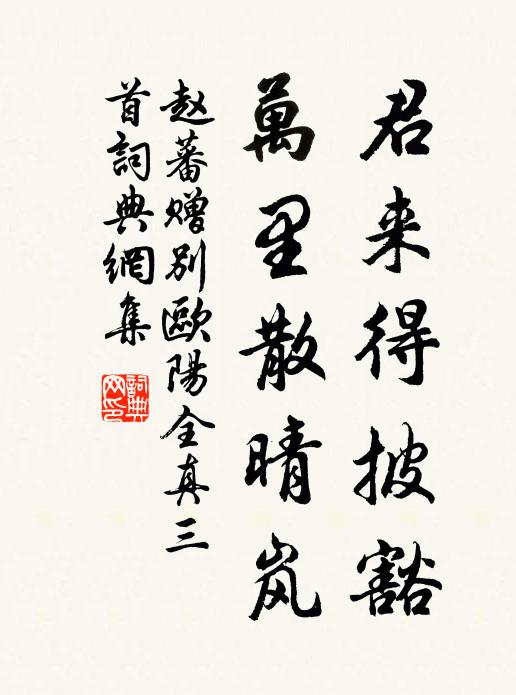 君来得披豁
萬里散晴岚
赵蕃赠别歐陽全真三
首詞典網集
詞典
网印